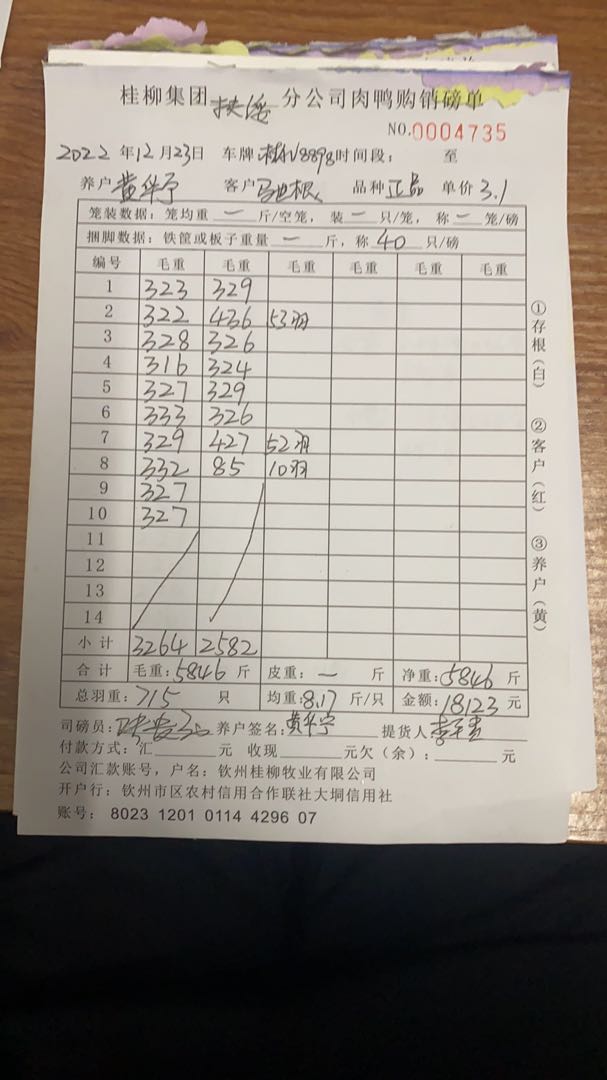 桂柳集团扶绥分公司肉鸭购销磅单
NO.0004735
2022年12月23日 车牌 8898 时间段： 至
养户 黄华宁 客户 品种 正品 单价 3.1
笼装数据：笼均重 一 斤/空笼，装 一 只/笼，称 一 笼/磅
捆脚数据：铁筐或板子重量 一 斤，称 40 只/磅
编号 毛重 毛重 毛重 毛重 毛重 毛重
1 323 329
2 322 436 53羽
3 328 326
4 316 324
5 327 329
6 333 326
7 329 427 52羽
8 332 85 10羽
9 327
10 327
11
12
13
14
小计 3264 2582
合计 毛重：5846 斤 皮重：一 斤 净重：5846 斤
总羽重：715 只 均重：8.17 斤/只 金额：18123 元
司磅员： 养户签名：黄华宁 提货人
付款方式：汇 元 收现 元欠（余）： 元
公司汇款账号，户名：钦州桂柳牧业有限公司
开户行：钦州市区农村信用合作联社大垌信用社
账号：8023 1201 0114 4296 07
①存根（白）
②客户（红）
③养户（黄）